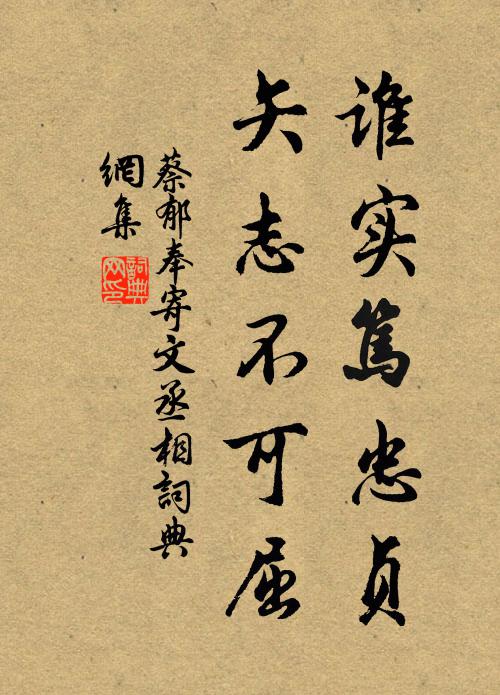 谁实笃忠贞
矢志不可屈
蔡郁奉寄文丞相詞典
網集
詞典
网印